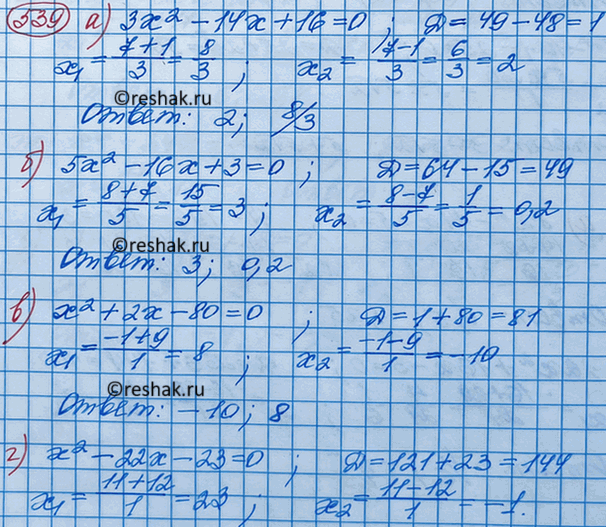 539 а) 3x² - 14x + 16 = 0 ; D = 49 - 48 = 1
x₁ = (7+1)/3 = 8/3 ; x₂ = (7-1)/3 = 6/3 = 2
©reshak.ru
Ответ: 2; 8/3
б) 5x² - 16x + 3 = 0 ; D = 64 - 15 = 49
x₁ = (8+7)/5 = 15/5 = 3 ; x₂ = (8-7)/5 = 1/5 = 0,2
©reshak.ru
Ответ: 3; 0,2
в) x² + 2x - 80 = 0 ; D = 1 + 80 = 81
x₁ = (-1+9)/1 = 8 ; x₂ = (-1-9)/1 = -10
©reshak.ru
Ответ: -10; 8
г) x² - 22x - 23 = 0 ; D = 121 + 23 = 144
x₁ = (11+12)/1 = 23 ; x₂ = (11-12)/1 = -1.